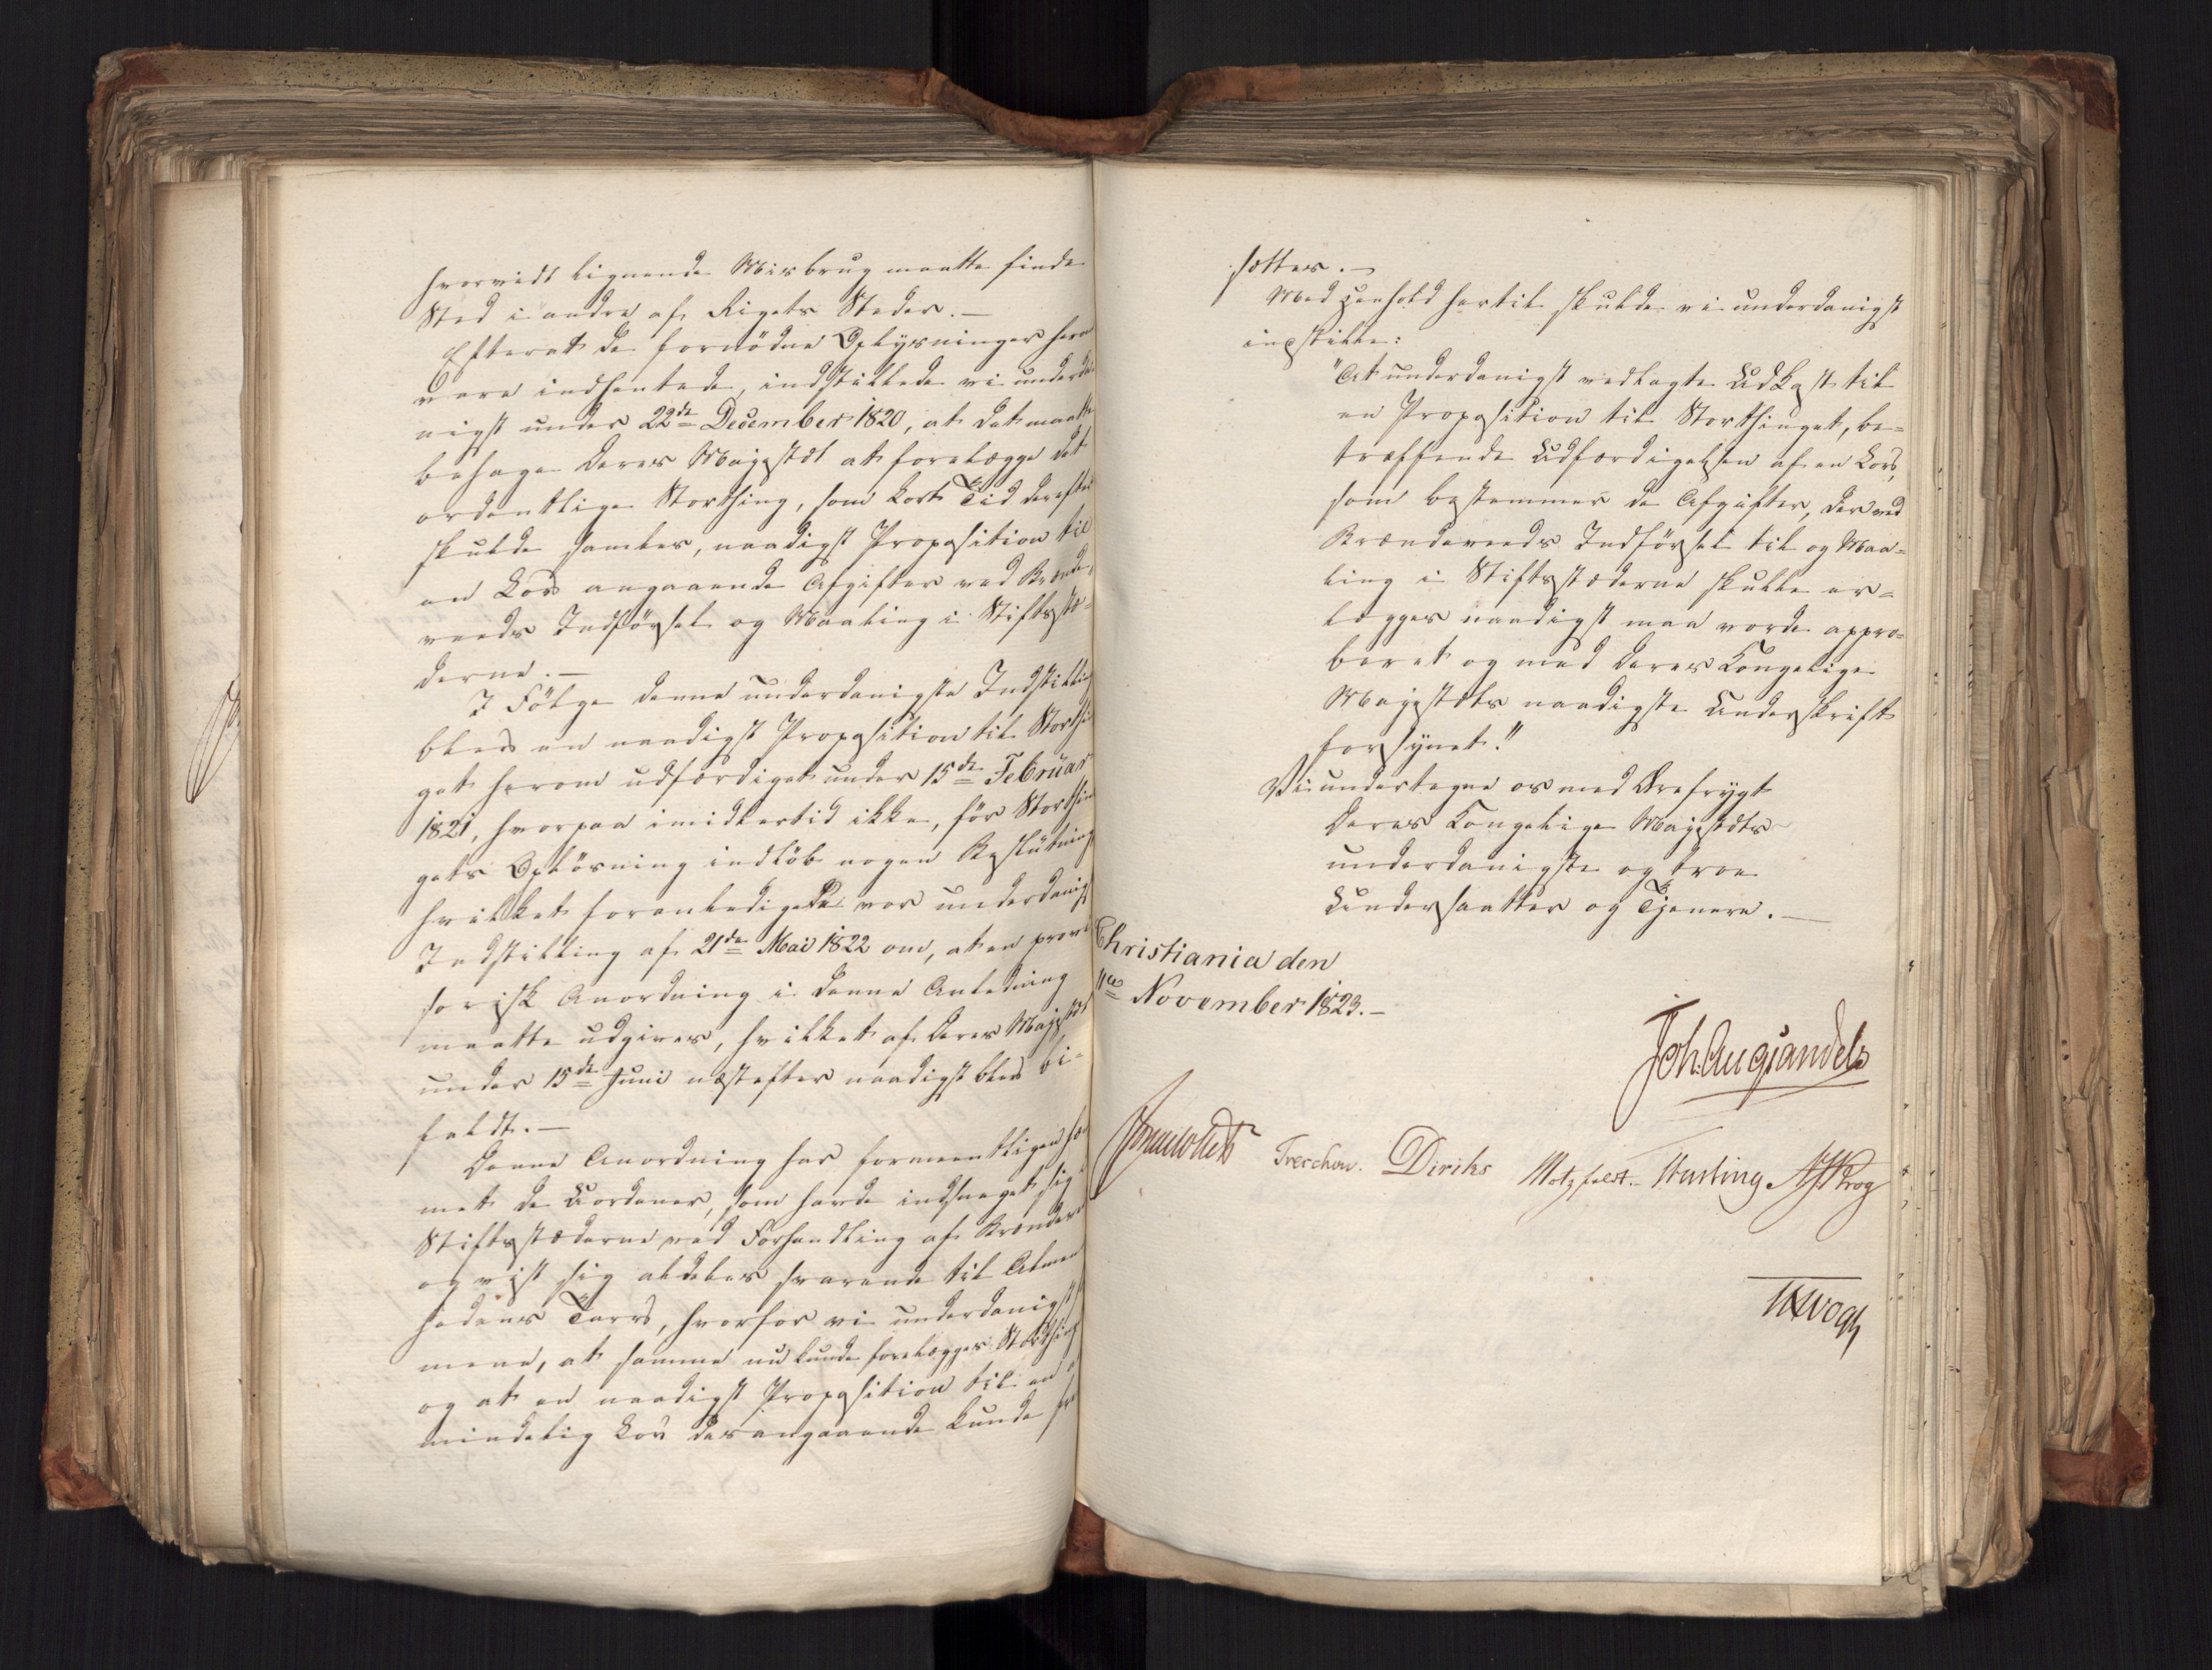 hvorvidt lignende Misbrug maatte finde
Sted i andre af Rigets Steder. —
Efterat de fornødne Oplysninger herom
vare indhentede, indstillede vi underda
nigst under 22de December 1820, at det maatte
behage Deres Majestæt at forelægge det
ordentlige Storthing, som kort Tid derefter
skulde samles, naadigst Proposition til
en Lov angaaende Afgifter ved Brænde-
veeds Indførsel og Maaling i Stiftsstæ-
derne. —
I Følge denne underdanigste Indstilling
blev en naadigst Proposition til Storthin
get herom udfærdiget under 15de Februar
1821, hvorpaa imidlertid ikke, før Storthin
gets Opløsning indløb nogen Beslutning,
hvilket foranledigede vor underdanigst
Indstilling af 21de Mai 1822 om, at en provi
sorisk Anordning i denne Anledning
maatte udgives, hvilket af Deres Majestæt
under 15de Juni næstefter naadigst blev bi-
faldt. —
Denne Anordning har formeentligen hæ
met de Uordener, som havde indsneget sig i
Stiftsstæderne ved Forhandling af Brændeve
og vist sig aldeles svarende til Almen
hedens Tarv, hvorfor vi underdanigst
mene, at samme nu kunde forelægges Storthing
og at en naadigst Proposition til en a
mindelig Lov desangaaende kunde fr
sættes. —
Med Henhold hertil skulde vi underdanigst
indstille:
"At underdanigst vedlagte Udkast til
en Proposition til Storthinget, be-
træffende Udfærdigelsen af en Lov,
som bestemmer de Afgifter, der ved
Brændeveeds Indførsel til og Maa-
ling i Stiftsstæderne skulle er-
lægges naadigst maa vorde appro-
beret og med Deres Kongelige
Majestæts naadigste Underskrift
forsynet."
Vi undertegne os med Ærefrygt
Deres Kongelige Majestæts
underdanigste og troe
Undersaatter og Tjenere. —
Christiania den
11te November 1823. —
Joh. Aug. Sandels
Sommerhielm Treschow. Diriks Motzfeldt. Hasting Krog
Vogt